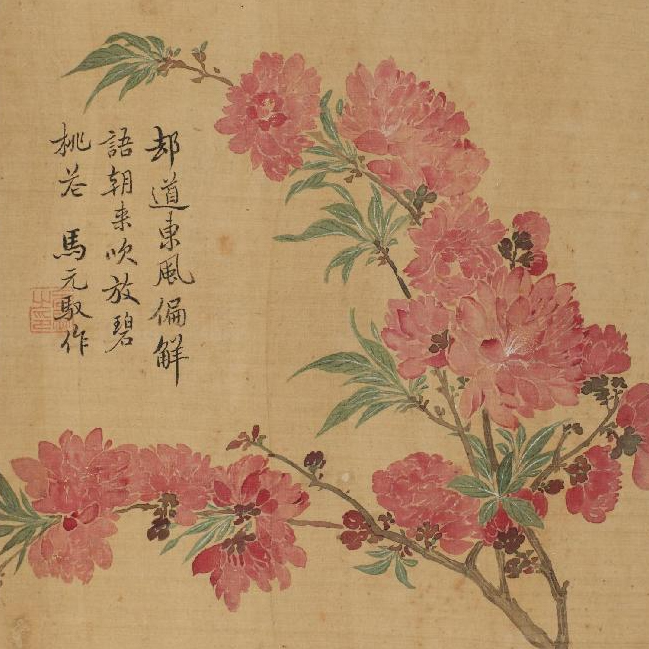 却道東風偏觧
語朝来吹放碧
桃花 馬元馭作